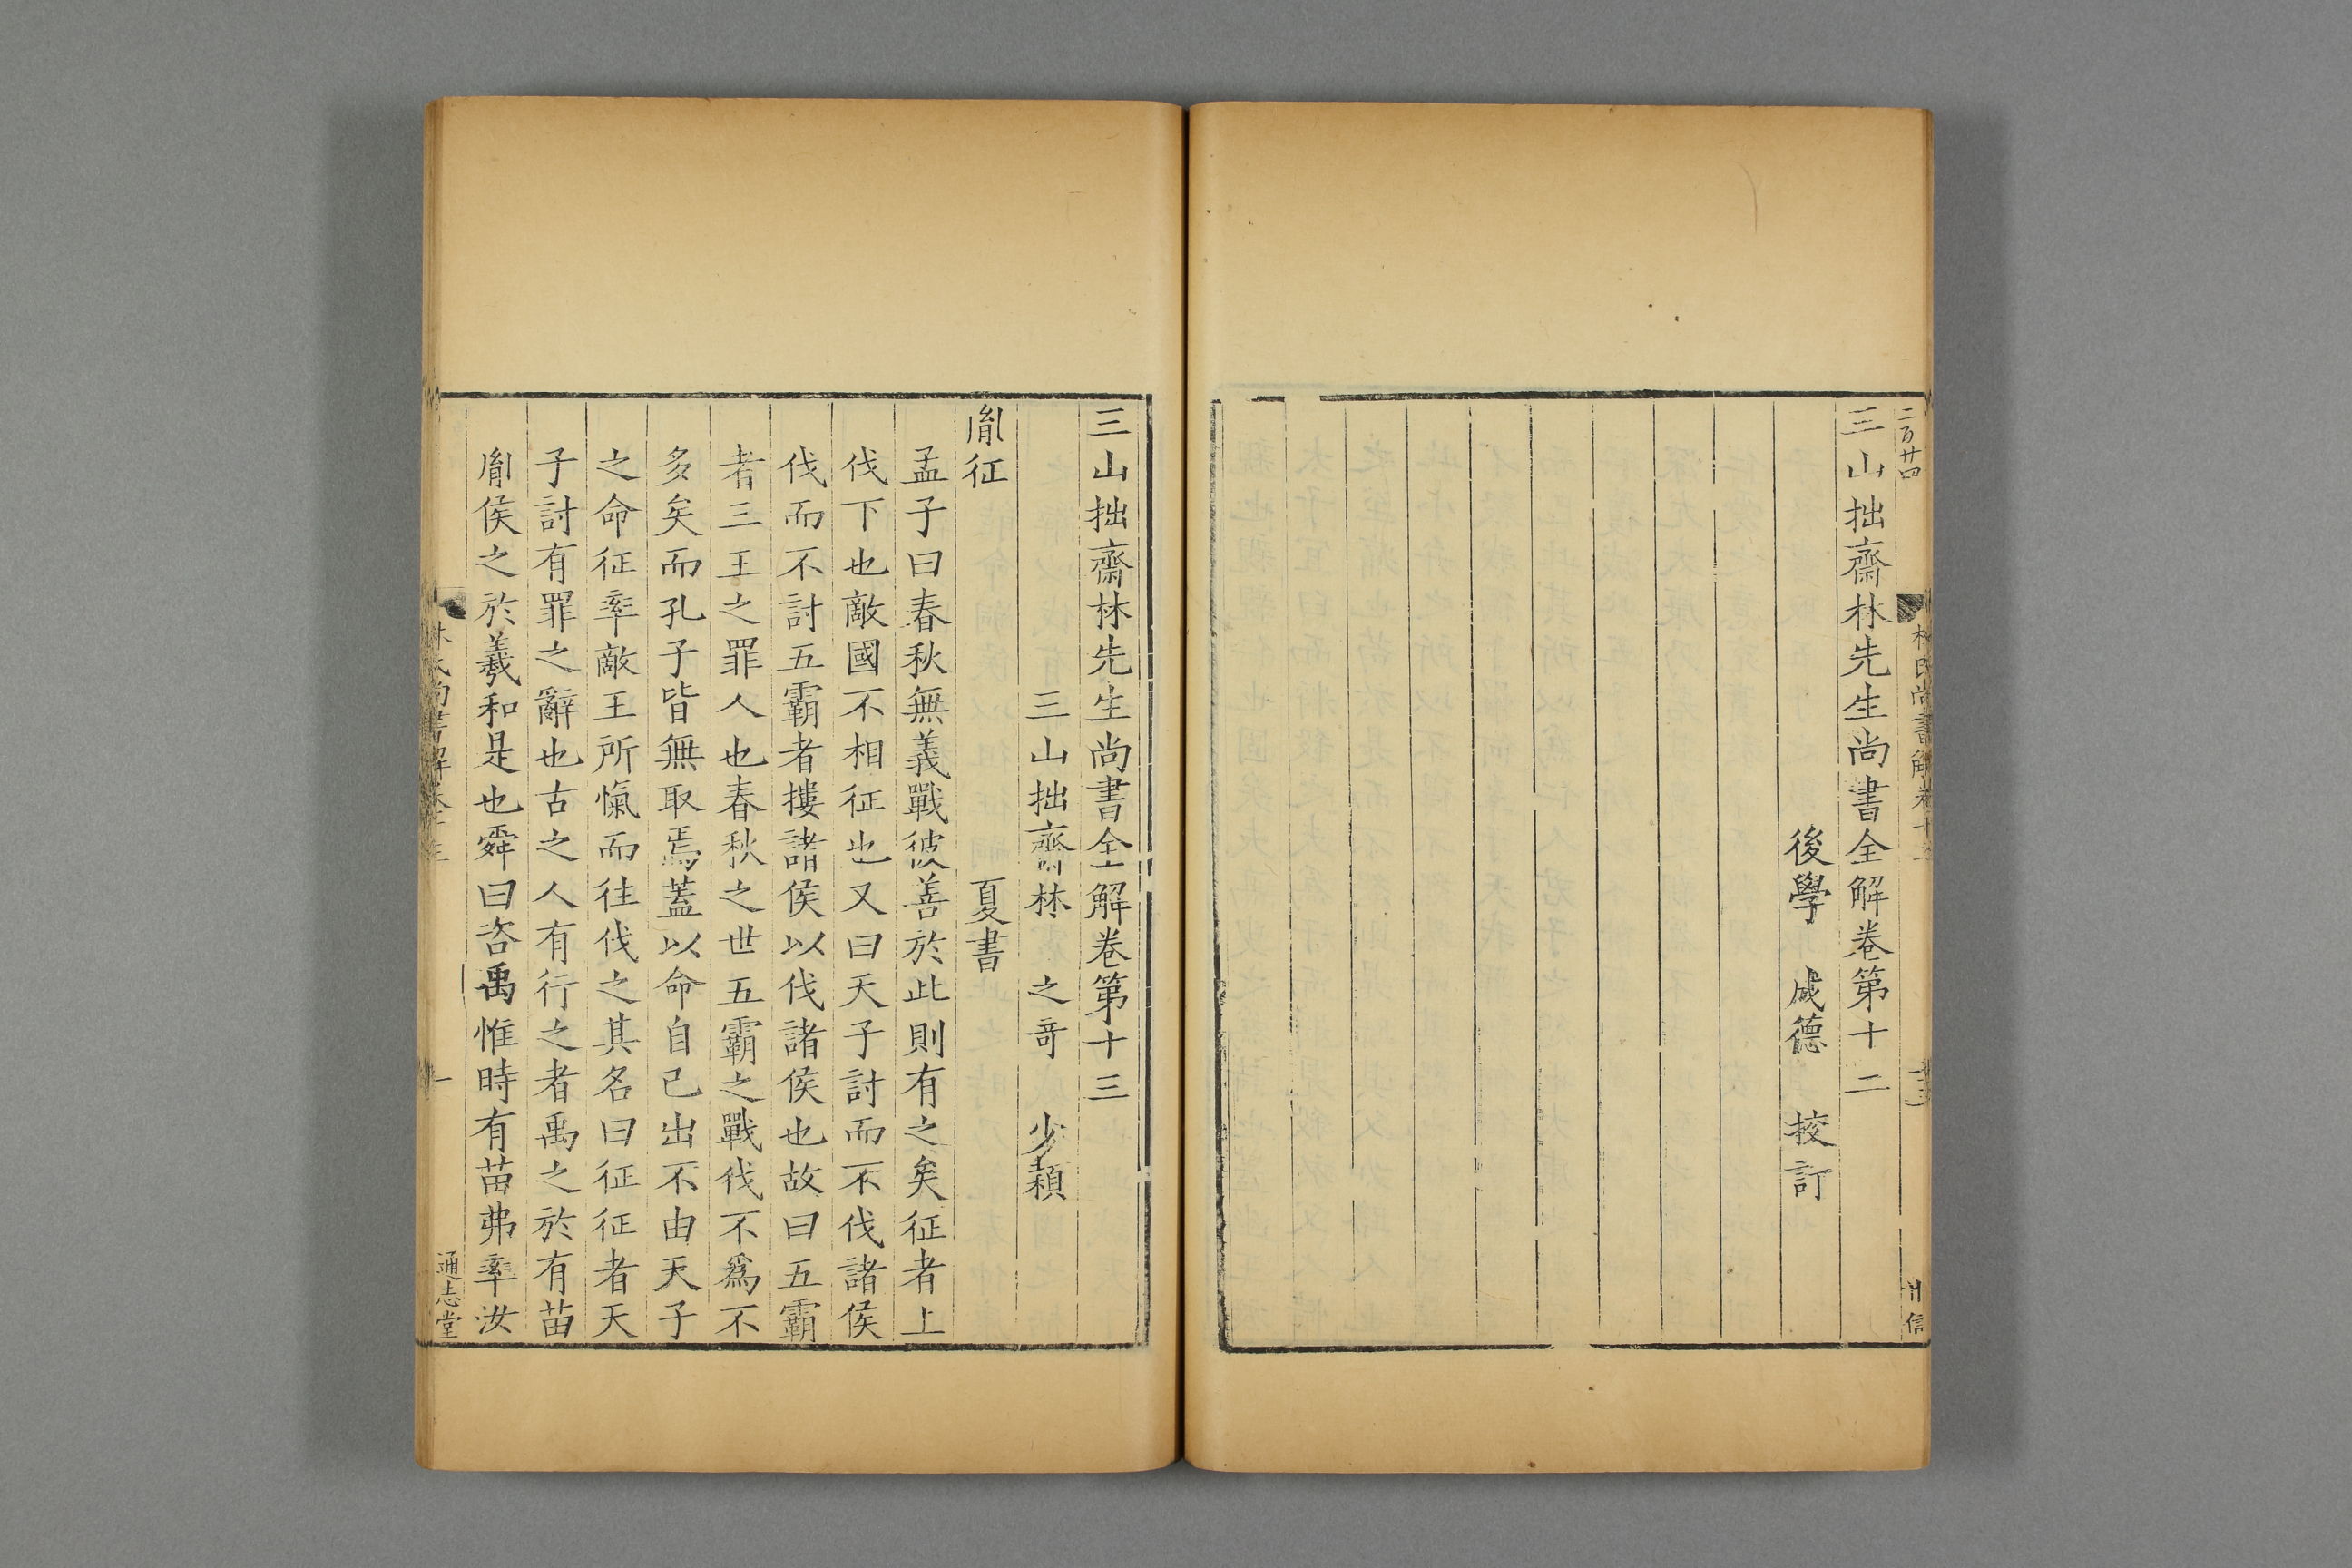 二百廿四
三山拙齋林先生尚書全解卷第十二
後學 成德 校訂
三山拙齋林先生尚書全解卷第十三
三山拙齋林 之奇 少穎
胤征 夏書
孟子曰春秋無義戰彼善於此則有之矣征者上
伐下也敵國不相征也又曰天子討而不伐諸侯
伐而不討五霸者摟諸侯以伐諸侯也故曰五霸
者三王之罪人也春秋之世五霸之戰伐不爲不
多矣而孔子皆無取焉蓋以命自己出不由天子
之命征率敵王所愾而往伐之其名曰征征者天
子討有罪之辭也古之人有行之者禹之於有苗
胤侯之於羲和是也舜曰咨禹惟時有苗弗率汝
林氏尚書解卷十三 一 通志堂